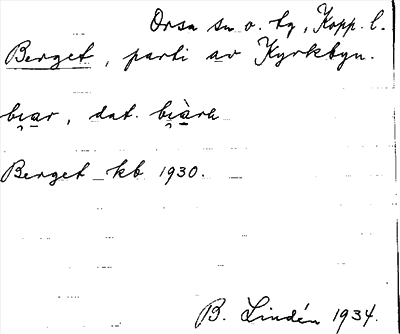 Orsa sn o. tg, Kopp. l.
Berget, parti av Kyrkbyn.
bı̯ar, dat.
Berget kb 1930.
B. Lindén 1934.